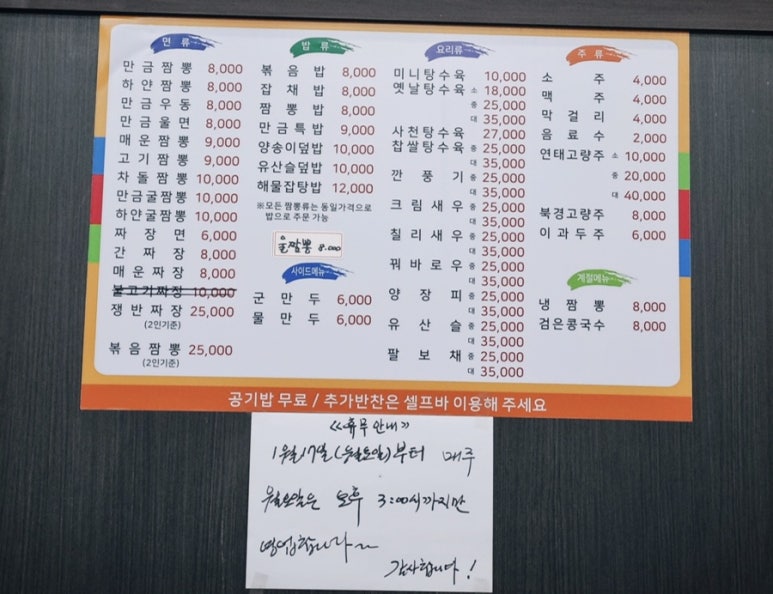 면 류
만금짬뽕 8,000
하얀짬뽕 8,000
만금우동 8,000
만금울면 8,000
매운짬뽕 9,000
고기짬뽕 9,000
차돌짬뽕 10,000
만금굴짬뽕 10,000
하얀굴짬뽕 10,000
짜장면 6,000
간짜장 8,000
매운짜장 8,000
불고기짜장 10,000
쟁반짜장 25,000
(2인기준)
볶음짬뽕 25,000
(2인기준)
밥 류
볶음밥 8,000
잡채밥 8,000
짬뽕밥 8,000
만금특밥 9,000
양송이덮밥 10,000
유산슬덮밥 10,000
해물잡탕밥 12,000
※모든 짬뽕류는 동일가격으로
밥으로 주문 가능
울짬뽕 8.000
사이드메뉴
군만두 6,000
물만두 6,000
요리류
미니탕수육 10,000
옛날탕수육 소 18,000
중 25,000
대 35,000
사천탕수육 27,000
찹쌀탕수육 중 25,000
대 35,000
깐풍기 중 25,000
대 35,000
크림새우 중 25,000
대 35,000
칠리새우 중 25,000
대 35,000
꿔바로우 중 25,000
대 35,000
양장피 중 25,000
대 35,000
유산슬 중 25,000
대 35,000
팔보채 중 25,000
대 35,000
주 류
소주 4,000
맥주 4,000
막걸리 4,000
음료수 2,000
연태고량주 소 10,000
중 20,000
대 40,000
북경고량주 8,000
이과두주 6,000
계절메뉴
냉짬뽕 8,000
검은콩국수 8,000
공기밥 무료 / 추가반찬은 셀프바 이용해 주세요
<<휴무안내>>
1월17일(월요일)부터 매주
월요일은 오후 3:00시까지만
영업합니다~
감사합니다!